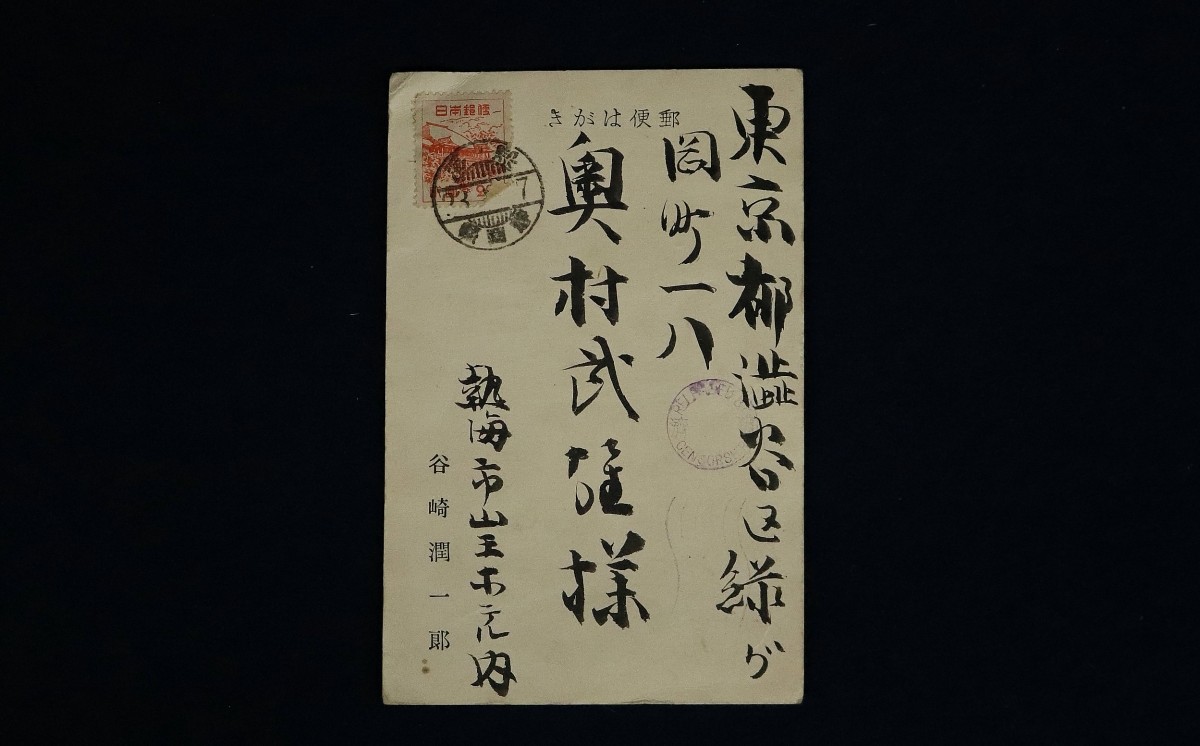 郵便はがき
東京都澁谷区緑ガ
岡町一八
奥村武雄様
熱海市山王ホテル内
谷崎潤一郎
日本郵便
CENSORS